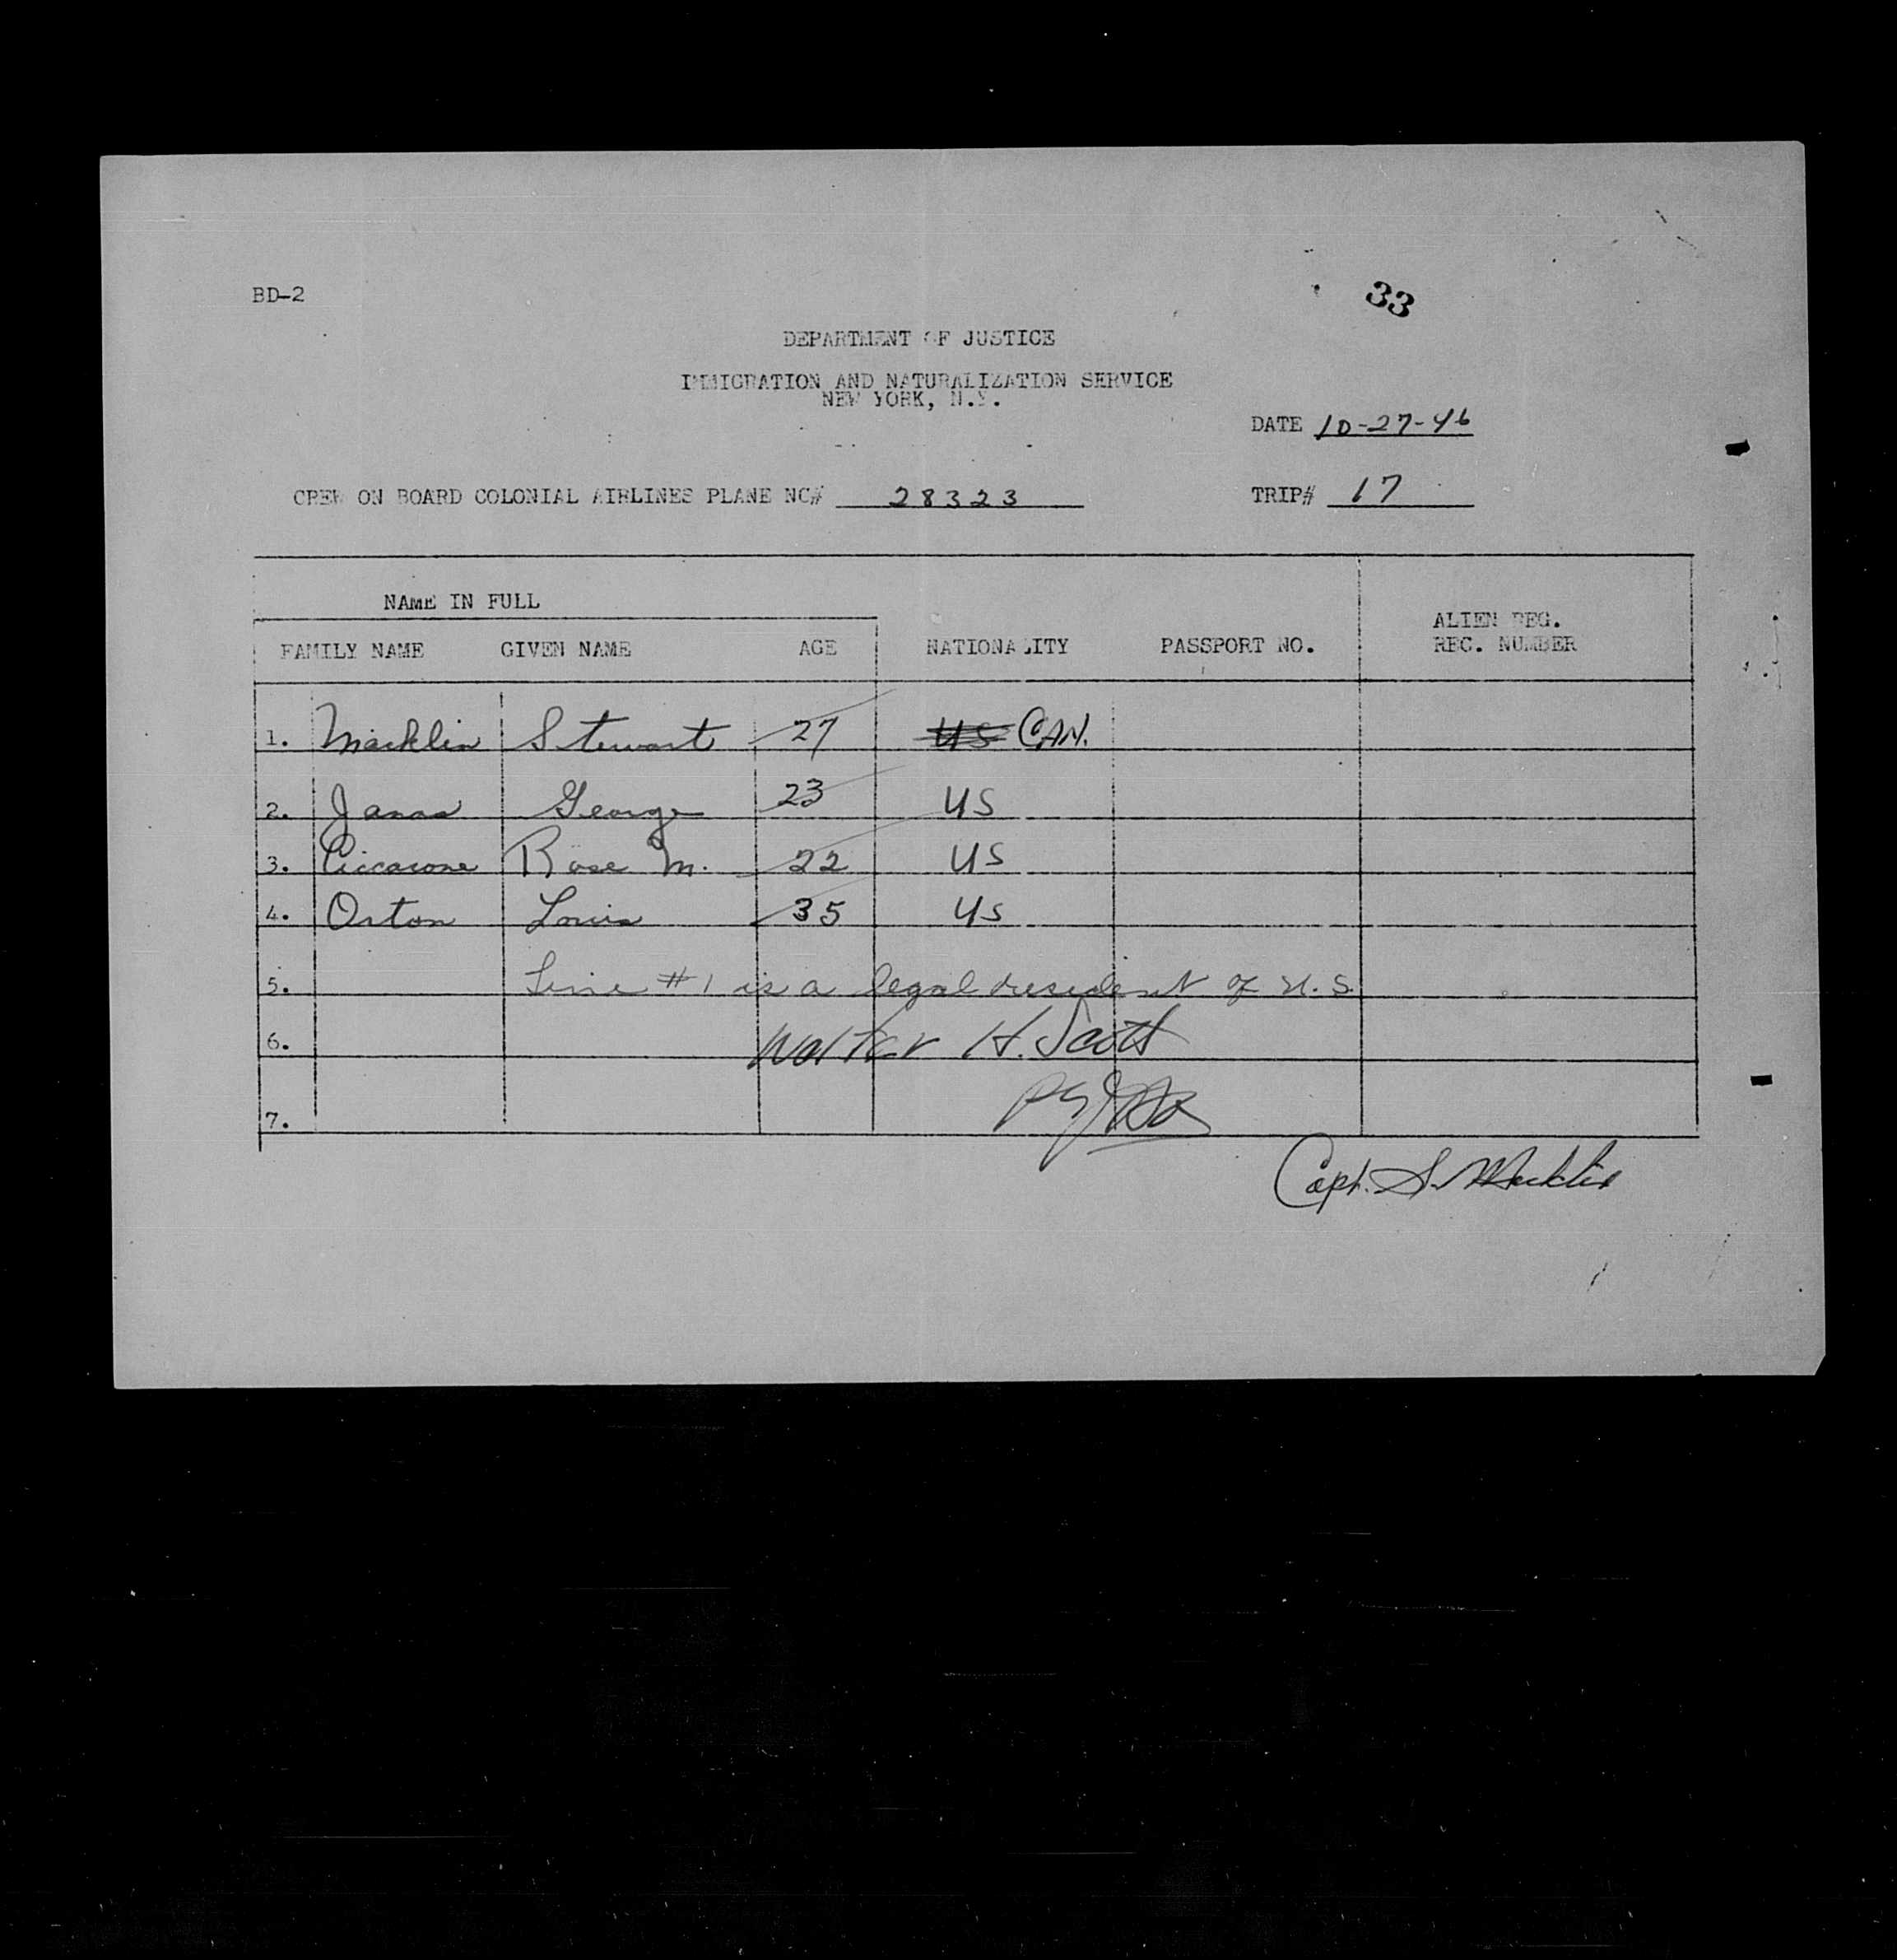 BD-2
33
DEPARTMENT OF JUSTICE
IMMIGRATION AND NATURALIZATION SERVICE
NEW YORK, N.Y.
DATE 10-27-46
CREW ON BOARD COLONIAL AIRLINES PLANE NC# 28323 TRIP# 17
NAME IN FULL
FAMILY NAME GIVEN NAME AGE NATIONALITY PASSPORT NO. ALIEN REG. REC. NUMBER
1. Macklin Stewart 27 US CAN.
2. Janas George 23 US
3. Ciccarone Rose M. 22 US
4. Orton Louis 35 US
5. Line #1 is a legal resident of U.S.
6. Walter H. Scott
7.
Capt. S. Macklin